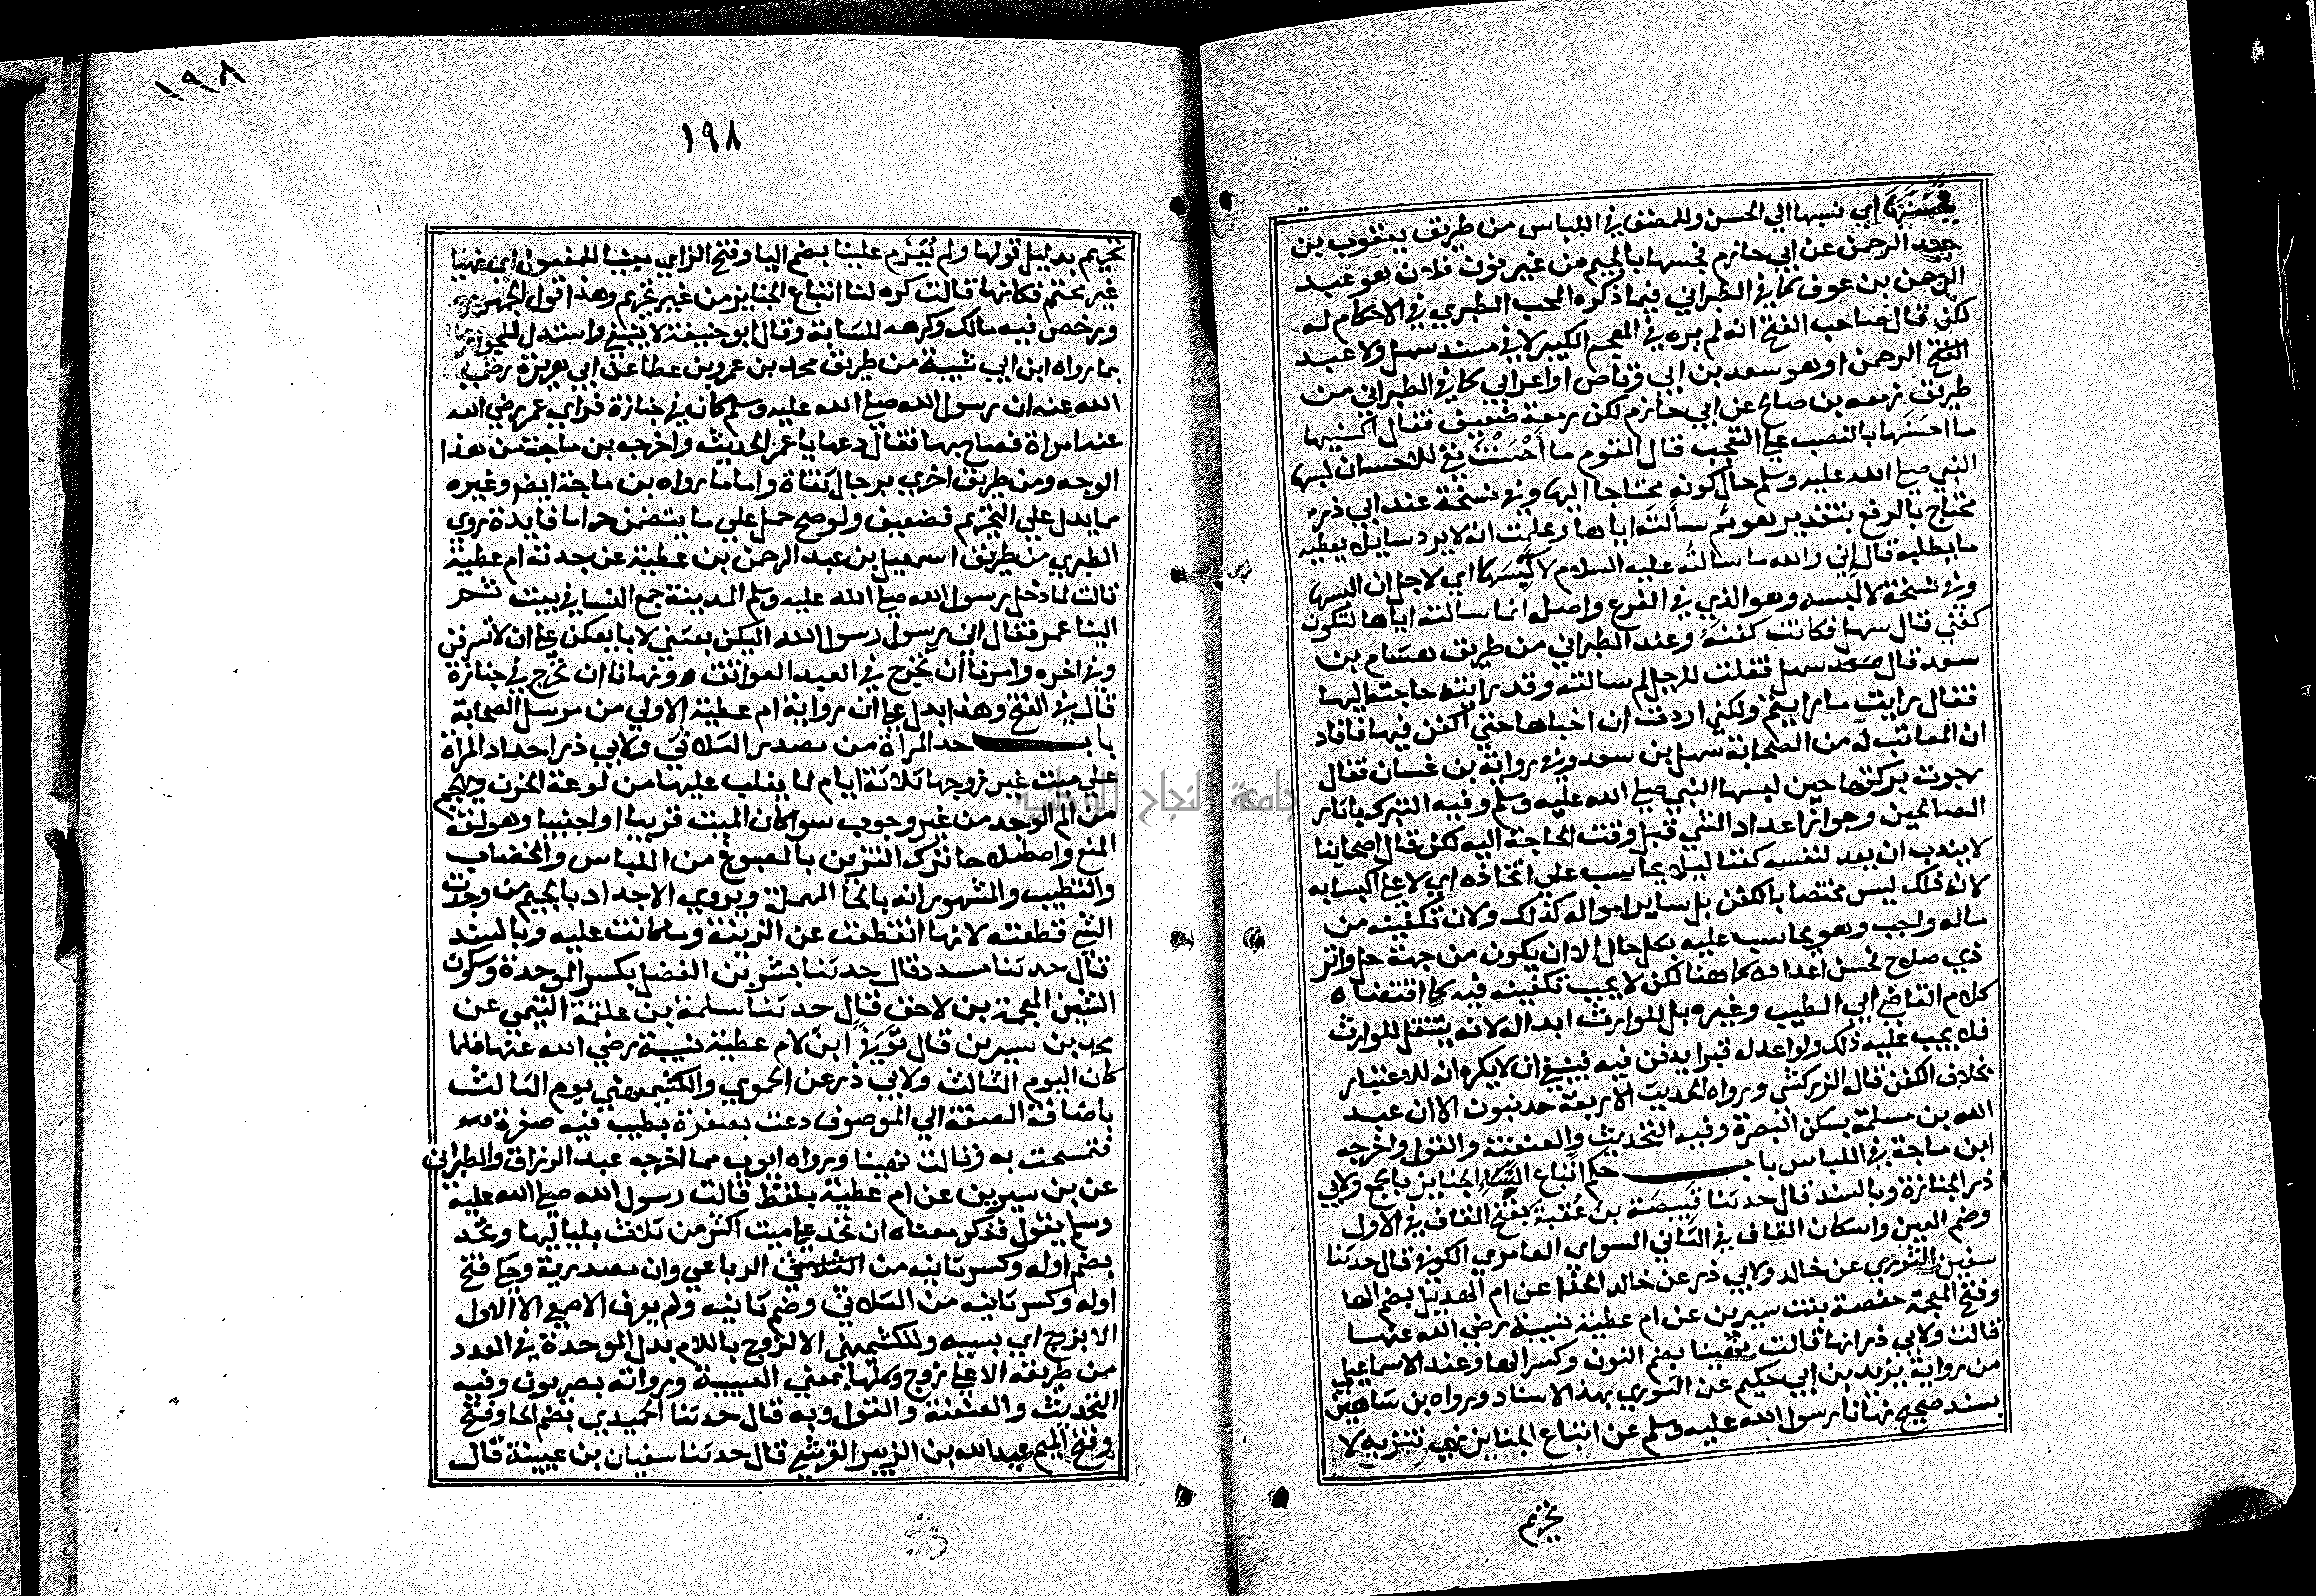 فحسنها اي نسبها الي الحسن وللمصنف في اللباس من طريق يعقوب بن
عبد الرحمن عن ابي حازم فجسها بالجيم من غير نون فلان هو عبد
الرحمن بن عوف كما في الطبراني فيما ذكره المحب الطبري في الاحكام له
لكن قال صاحب الفتح انه لم يره في المعجم الكبير لا في مسند سهل ولا عبد
الرحمن او هو سعد بن ابي وقاص او اعرابي كما في الطبراني من
طريق زمعه بن صالح عن ابي حازم لكن زمعة ضعيف فقال اكسنيها
ما احسنها بالنصب علي التعجب قال القوم ما أحسنت نفي للاحسان لبسها
النبي صلي الله عليه وسلم حال كونه محتاجا اليها وفي نسخة عند ابي ذر
محتاج بالرفع بتقدير هو ثم سألته اياها وعلمت انه لا يرد سايلا يعطيه
ما يطلبه قال إني والله ما سالته عليه السلام لألبسها اي لاجل ان البسها
وفي نسخة لالبسه وهو الذي في الفرع واصله انما سالته اياها لتكون
كفني قال سهل فكانت كفنه وعند الطبراني من طريق هشام بن
سعد قال سهل فقلت للرجل لم سالته وقد رايت حاجته اليها
فقال رايت ما رايتم ولكني اردت ان اخباها حتي اكفن فيها فافاد
ان المعاتب له من الصحابة سهل بن سعد وفي رواية بن غسان فقال
رجوت بركتها حين لبسها النبي صلي الله عليه وسلم وفيه التبرك باثار
الصالحين وجواز اعداد الشي قبل وقت الحاجة اليه لكن قال اصحابنا
لا يندب ان يعد لنفسه كفنا ليلا يحاسب علي اتخاذه اي لا علي اكتسابه
لان ذلك ليس مختصا بالكفن بل ساير امواله كذلك ولان تكفينه من
ماله واجب وهو يحاسب عليه بكل حال الا ان يكون من جهة حل واثر
ذي صلاح فحسن اعداده كما هنا لكن لا يجب تكفينه فيه كما اقتضاه
كلام القاضي ابي الطيب وغيره بل للوارث ابداله لانه ينتقل للوارث
فلا يجب عليه ذلك ولو اعد له قبرا يدفن فيه فينبغي ان لا يكره لانه للاعتبار
بخلاف الكفن قاله الزركشي ورواة الحديث الاربعة مدنيون الا ان عبد
الله بن مسلمة سكن البصرة وفيه التحديث والعنعنة والقول واخرجه
ابن ماجة في اللباس باب حكم اتباع النساء الجنايز بالجمع ولابي
ذر الجنازة وبالسند قال حدثنا قبيصة بن عقبة بفتح القاف في الاول
وضم العين واسكان القاف في الثاني السواي العامري الكوفي قال حدثنا
سفين الثوري عن خالد ولابي ذر عن خالد الحذا عن ام الهذيل بضم الها
وفتح المعجمة حفصة بنت سيرين عن ام عطية نسيبة رضي الله عنها
قالت ولابي ذر انها قالت نهينا بضم النون وكسر الها وعند الاسماعيلي
من رواية يزيد بن ابي حكيم عن الثوري بهذا الاسناد ورواه بن شاهين
بسند صحيح نهانا رسول الله عليه وسلم عن اتباع الجنايز نهي تنزيه لا
تحريم
١٩٨
١٩٨
تحريم بدليل قولها ولم يعزم علينا بضم اليا وفتح الزاي مبنيا للمفعول اي نهيا
غير محتم فكانها قالت كره لنا اتباع الجنايز من غير تحريم وهذا قول الجمهور
ورخص فيه مالك وكرهه للشابة وقال ابو حنيفة لا ينبغي واستدل للجواز
بما رواه ابن ابي شيبة من طريق محمد بن عمرو بن عطا عن ابي هريرة رضي
الله عنه ان رسول الله صلي الله عليه وسلم كان في جنازة فراي عمر رضي الله
عنه امراة فصاح بها فقال دعها يا عمر الحديث واخرجه بن ماجة من هذا
الوجه ومن طريق اخري برجال ثقاة واما ما رواه بن ماجة ايضا وغيره
مما يدل علي التحريم فضعيف ولو صح حمل علي ما يتضمن حراما فايدة روي
الطبري من طريق اسمعيل بن عبد الرحمن بن عطية عن جدته ام عطية
قالت لما دخل رسول الله صلي الله عليه وسلم المدينة جمع النسا في بيت ثم
الينا عمر فقال اني رسول رسول الله اليكن بعثني لابايعكن علي ان لا تسرقن
وفي اخره وامرنا ان نخرج في العيد العواتق ونهانا ان نخرج في جنازة
قال في الفتح وهذا يدل علي ان رواية ام عطية الاولي من مرسل الصحابة
باب حد المراة من مصدر الثلاثي ولابي ذر احداد المراة
علي ميت غير زوجها ثلاثة ايام لما يغلب عليها من لوعة الحزن ويهجم
من الم الوجد من غير وجوب سوا كان الميت قريبا او اجنبيا وهو لغة
المنع واصطلاحا ترك التزين بالمصبوغ من اللباس والخضاب
والتطيب والمشهور انه بالحا المهملة ويروي الاجداد بالجيم من جددت
الشي قطعته لانها انقطعت عن الزينة وما كانت عليه وبالسند
قال حدثنا مسدد قال حدثنا بشر بن الفضل بكسر الموحدة وسكون
الشين المعجمة بن لاحق قال حدثنا سلمة بن علقمة التيمي عن
محمد بن سيرين قال توفي ابن لام عطية نسيبة رضي الله عنها فلما
كان اليوم الثالث ولابي ذر عن الحموي والكشميهني يوم الثالث
باضافة الصفة الي الموصوف دعت بصفرة بطيب فيه صفرة
فتمسحت به وقالت نهينا ورواه ايوب مما اخرجه عبد الرزاق والطبراني
عن بن سيرين عن ام عطية بلفظ قالت رسول الله صلي الله عليه
وسلم يقول فذكر معناه ان نحد علي ميت اكثر من ثلاث بلياليها ونحد
بضم اوله وكسر ثانيه من الرباعي وان مصدرية وجا فتح
اوله وكسر ثانيه من الثلاثي وضم ثانيه ولم يعرف الاصمعي الا الاول
الا بزوج اي بسببه وللكشميهني الا لزوج باللام بدل الموحدة في العدد
من طريقه الا علي زوج وكلها بمعني السببية ورواته بصريون وفيه
التحديث والعنعنة والقول وبه قال حدثنا الحميدي بضم الحا وفتح
وفتح الميم عبد الله بن الزبير القرشي قال حدثنا سفيان بن عيينة قال
جامعة النجاح الوطنية